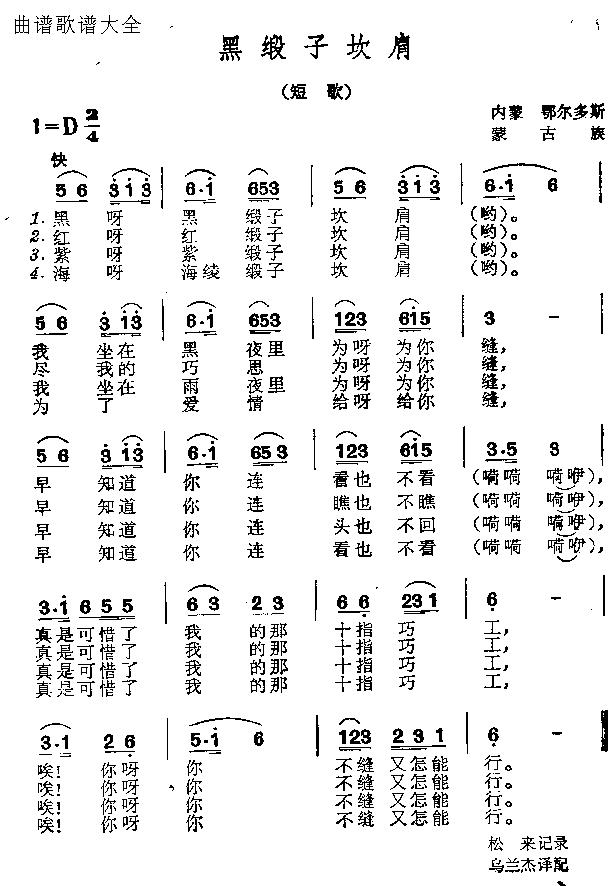 曲谱歌谱大全
黑缎子坎肩
（短 歌）
1=D 2/4
内蒙 鄂尔多斯
蒙 古 族
快
5 6 3̇ 1̇ 3̇ | 6·1̇ 6 5 3 | 5 6 3̇ 1̇ 3̇ | 6·1̇ 6 |
1. 黑 呀 黑 缎子 坎 肩 (哟)。
2. 红 呀 红 缎子 坎 肩 (哟)。
3. 紫 呀 紫 缎子 坎 肩 (哟)。
4. 海 呀 海绫 缎子 坎 肩 (哟)。
5 6 3̇ 1̇ 3̇ | 6·1̇ 6 5 3 | 1 2 3 6 1̇ 5 | 3 - |
我 坐在 黑 夜里 为呀 为你 缝，
尽 我的 巧 思 为呀 为你 缝，
我 坐在 雨 夜里 为呀 为你 缝，
为 了 爱 情 给呀 给你 缝，
5 6 3̇ 1̇ 3̇ | 6·1̇ 6 5 3 | 1 2 3 6 1̇ 5 | 3·5 3 |
早 知道 你 连 看也 不看 (嗬嗬 嗬咿)，
早 知道 你 连 瞧也 不瞧 (嗬嗬 嗬咿)，
早 知道 你 连 头也 不回 (嗬嗬 嗬咿)，
早 知道 你 连 看也 不看 (嗬嗬 嗬咿)，
3·1̇ 6 5 5 | 6 3 2 3 | 6 6̣ 2 3 1 | 6̣ - |
真是可惜了 我 的那 十指 巧 工，
真是可惜了 我 的那 十指 巧 工，
真是可惜了 我 的那 十指 巧 工，
真是可惜了 我 的那 十指 巧 工，
3·1 2 6̣ | 5·1̇ 6 | 1 2 3 2 3 1 | 6̣ - |
唉！ 你呀 你 不缝 又怎能 行。
唉！ 你呀 你 不缝 又怎能 行。
唉！ 你呀 你 不缝 又怎能 行。
唉！ 你呀 你 不缝 又怎能 行。
松 来记录
乌兰杰译配